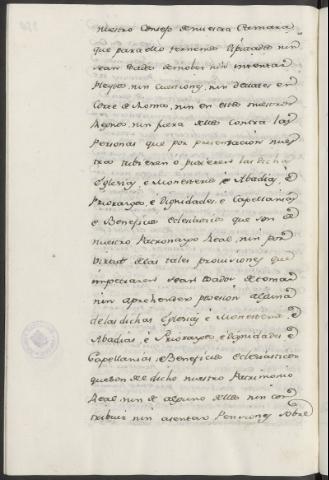 nuestro Consejo de nuestra Camara
que para ello tenemos Diputados nin
sean osados de mober nin intentar
Pleytos nin Cuestiones, nin debates en
Corte de Roma, nin en estos nuestros
Reynos, nin fuera dellos contra las
Personas que por presentacion nues
tra tubieren o pusieren las dichas
Yglesias, e Monesterios e Abadias, e
Prioratgos e Dignidades e Capellanias
e Beneficios eclesiasticos que son de
nuestro Patronazgo Real, nin por
virtud de las tales provisiones que
impetraren sean osados de tomar
nin aprehender posesion alguna
de las dichas Yglesias e Monesterios e
Abadias, e Prioratgos e Dignidades e
Capellanias e Beneficios eclesiasticos
que son de el dicho nuestro Patrimonio
Real nin de alguno dellos nin con
tribuir nin asentar Pensiones sobre